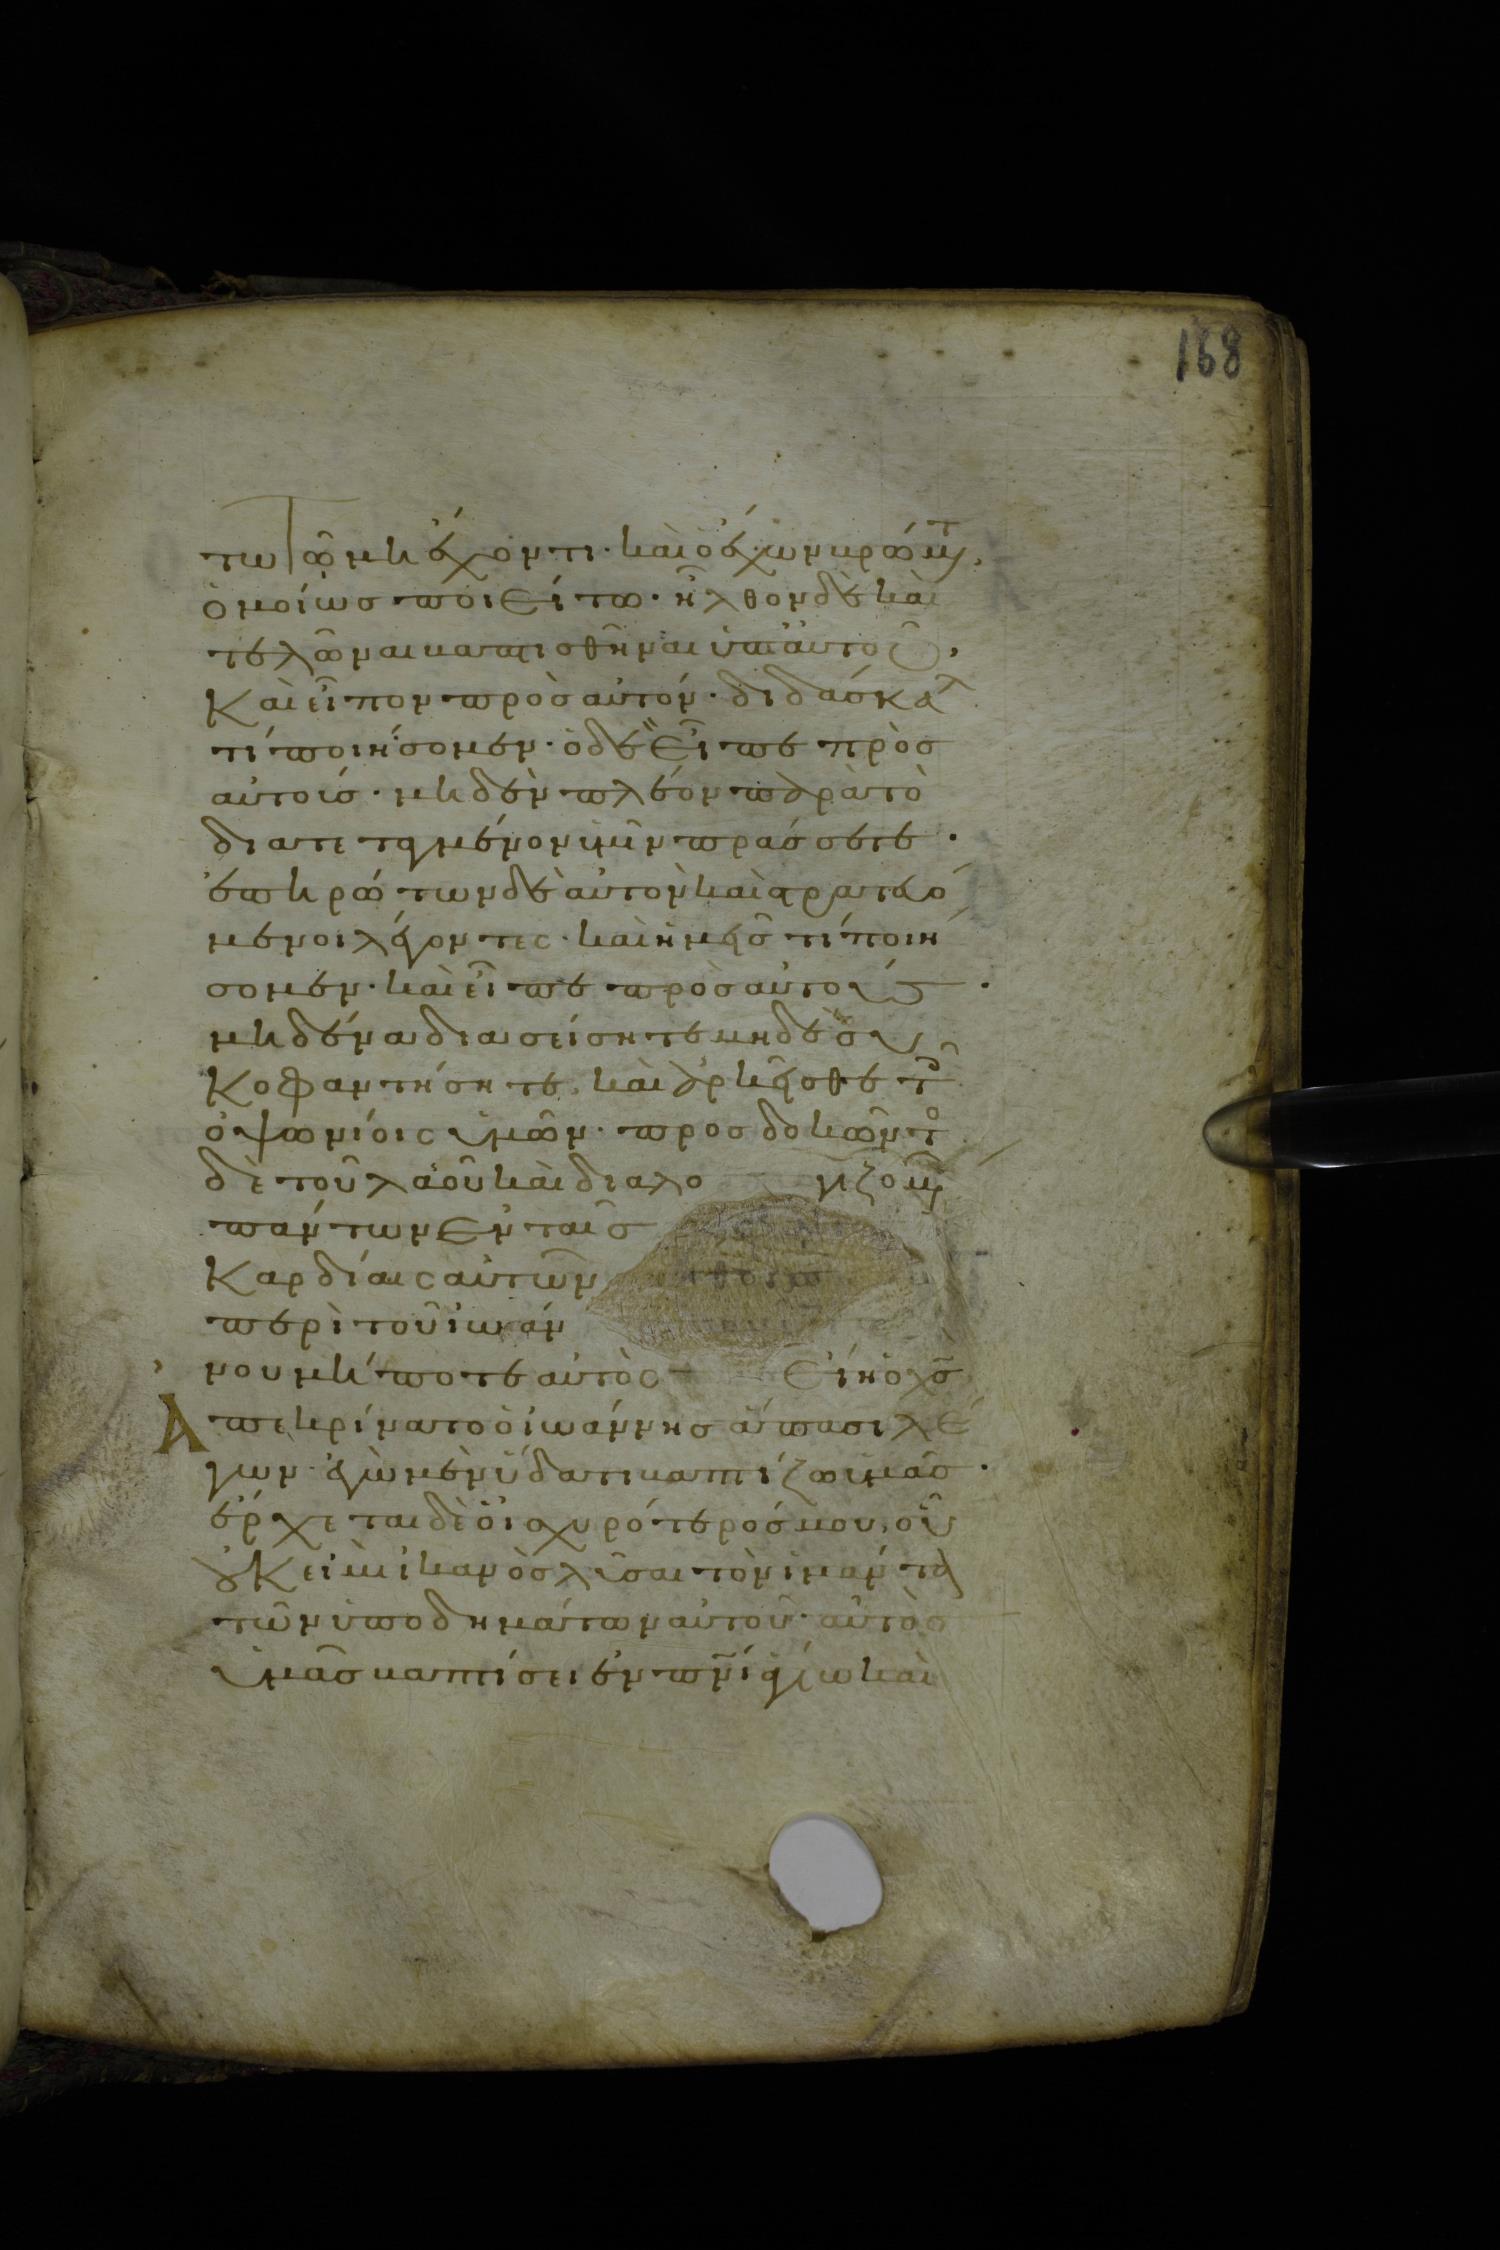 168
τω τῶ μὴ ἔχοντι· καὶ ὁ ἔχων βρώμ(ατα),
ὁμοίως ποιείτω· ἦλθον δὲ καὶ
τελῶναι βαπτισθῆναι ὑπ' αὐτοῦ,
Καὶ εἶπον πρὸς αὐτόν· διδάσκαλ
τί ποιήσομεν· ὁ δὲ εἶπε πρὸς
αὐτούς· μηδὲν πλέον παρὰ τὸ
διατεταγμένον ὑμῖν πράσσετε·
ἐπηρώτων δὲ αὐτὸν καὶ στρατευό
μενοι λέγοντες· καὶ ἡμεῖς τί ποιή
σομεν· καὶ εἶπε πρὸς αὐτούς·
μηδένα διασείσητε μηδὲ συ
Κοφαντήσητε, καὶ ἀρκεῖσθε τοῖς
ὀψωνίοις ὑμῶν· προσδοκῶντο
δὲ τοῦ λαοῦ καὶ διαλογιζομ
πάντων ἐν ταῖς
Καρδίαις αὐτῶν
περὶ τοῦ ἰωάν
νου μήποτε αὐτὸς εἴη ὁ χς
Ἀπεκρίνατο ὁ ἰωάννης ἅπασι λέ
γων· ἐγὼ μὲν ὕδατι βαπτίζω ὑμᾶς·
ἔρχεται δὲ ὁ ἰσχυρότερός μου, οὗ
οὐκ εἰμὶ ἱκανὸς λῦσαι τὸν ἱμάντα
τῶν ὑποδημάτων αὐτοῦ· αὐτὸς
ὑμᾶς βαπτίσει ἐν πνι ἁγίω καὶ